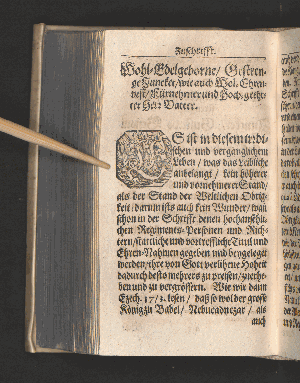 Zuschrifft.
Wohl-Edelgeborne/ Gestren-
ge Juncker/ wie auch Wol. Ehren-
vest/ Fürnehmer und Hoch. geehr-
ter Herr Vatter.
ES ist in diesem irdi-
schen und vergänglichen
Leben/ was das Leibliche
anbelangt/ kein höherer
und vornehmerer Stand/
als der Stand der Weltlichen Obrig-
keit: darum ists auch kein Wunder/ was
schon in der Schrifft denen hochansehli-
chen Regiments-Personen und Rich-
tern/ stattliche und vortreffliche Titul und
Ehren-Nahmen gegeben und beygelegt
werden/ ihre von Gott verlihene Hoheit
dadurch desto mehrers zu preisen/ zu erhe-
ben und zu vergrössern. Wie wir dann
Ezech. 17/3. lesen/ daß so wol der grosse
König zu Babel/ Nebucadnezar/ als
auch